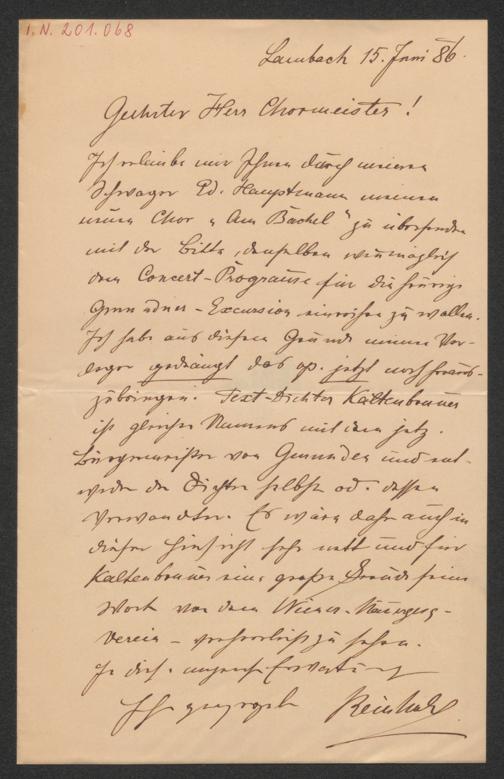 I. N. 201.068
Lambach 15. Juni 86.
Geehrter Herr Chormeister!
Ich erlaube mir Ihnen durch meinen
Schwager Ed. Hauptmann meinen
neuen Chor „Am Bachel" zu übersenden
mit der Bitte, denselben womöglich
dem Concert-Programme für die heurige
Gmundner-Excursion einreihen zu wollen.
Ich habe aus diesem Grunde meinen Ver-
leger gedrängt das op. jetzt noch heraus-
zubringen. Text-Dichter Kaltenbrunner
ist gleichen Namens mit dem jetz.
Bürgermeister von Gmunden und ent-
weder der Dichter selbst od. dessen
Verwandter. Es wäre daher auch in
dieser Hinsicht sehr nett und für
Kaltenbrunner eine große Freude sein
Werk von dem Wiener-Männerges.-
Verein – verherrlicht zu sehen.
In dies. angeneh. Erwartung
Ihr ganz ergeb.